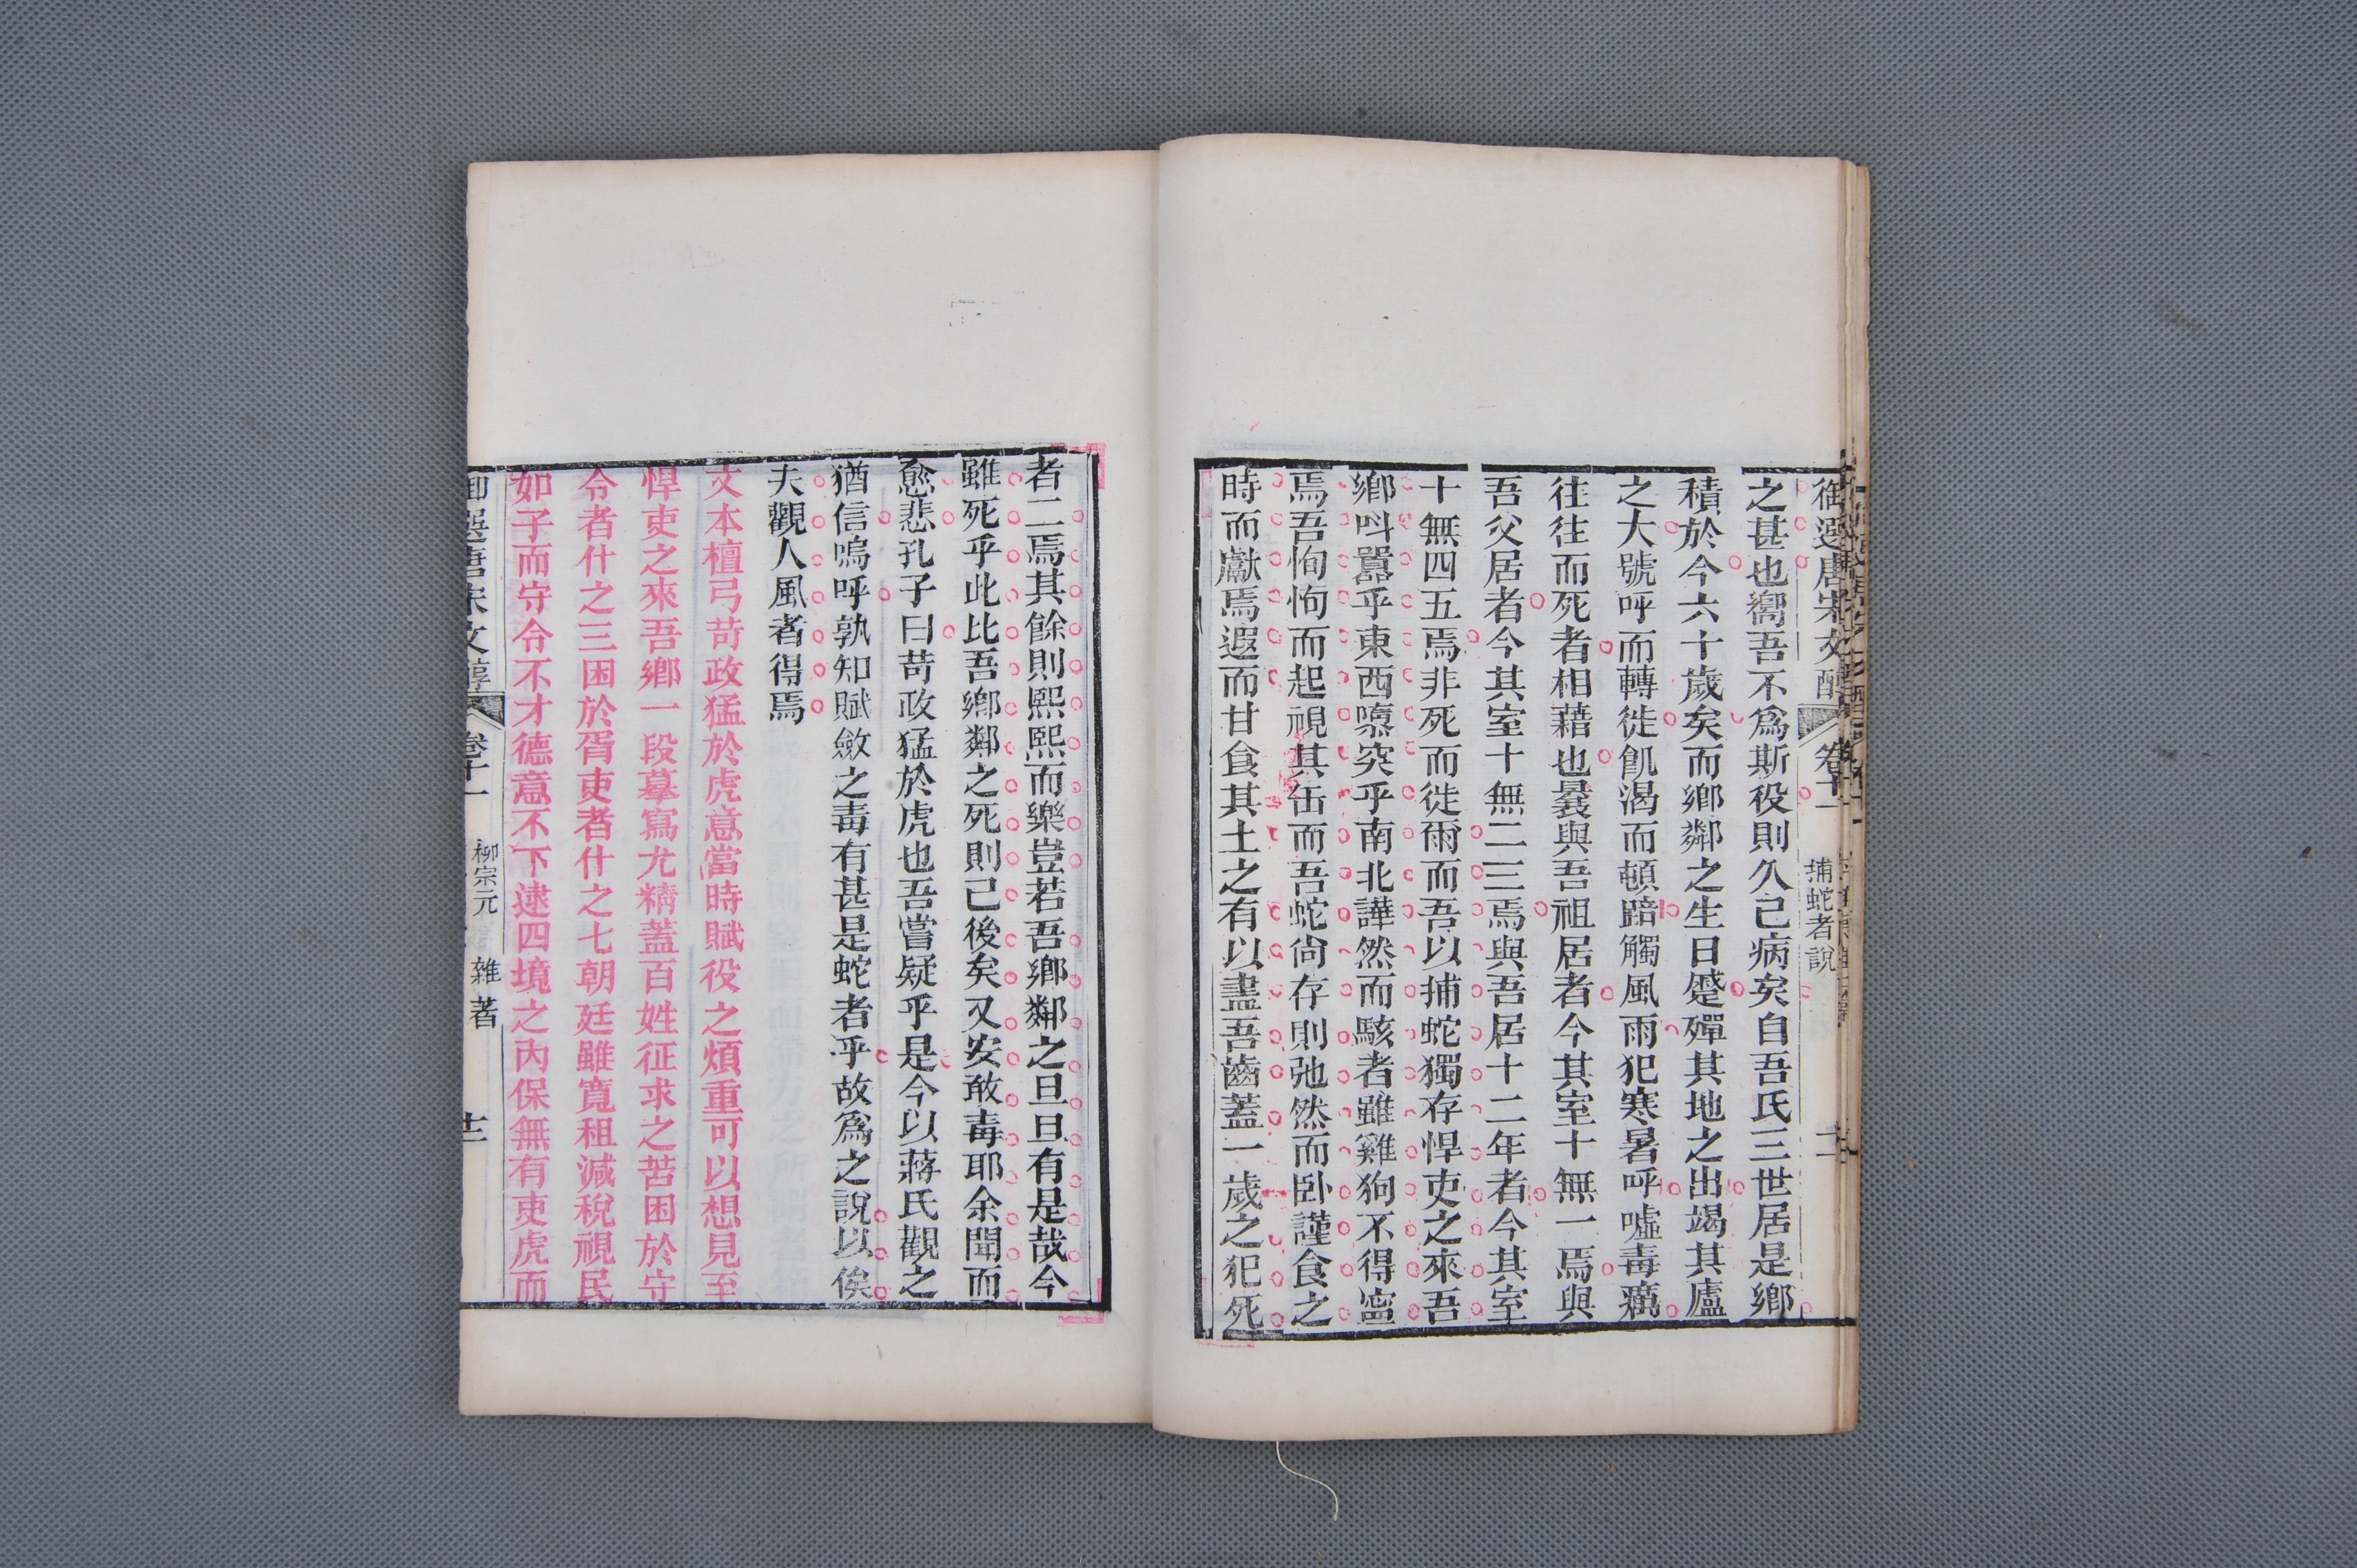 御選唐宋文醇 卷十一 捕蛇者說
之甚也嚮吾不爲斯役則久已病矣自吾氏三世居是鄉
積於今六十歲矣而鄉鄰之生日蹙殫其地之出竭其廬
之大號呼而轉徙飢渴而頓踣觸風雨犯寒暑呼噓毒癘
往往而死者相藉也曩與吾祖居者今其室十無一焉與
吾父居者今其室十無二三焉與吾居十二年者今其室
十無四五焉非死而徙爾而吾以捕蛇獨存悍吏之來吾
鄉叫囂乎東西隳突乎南北譁然而駭者雖雞狗不得寧
焉吾恂恂而起視其缶而吾蛇尙存則弛然而臥謹食之
時而獻焉遐而甘食其土之有以盡吾齒蓋一歲之犯死
者二焉其餘則熙熙而樂豈若吾鄉鄰之旦旦有是哉今
雖死乎此比吾鄉鄰之死則已後矣又安敢毒耶余聞而
愈悲孔子曰苛政猛於虎也吾嘗疑乎是今以蔣氏觀之
猶信嗚呼孰知賦斂之毒有甚是蛇者乎故爲之說以俟
夫觀人風者得焉
文本檀弓苛政猛於虎意當時賦役之煩重可以想見至
悍吏之來吾鄉一段摹寫尤精蓋百姓征求之苦困於守
令者什之三困於胥吏者什之七朝廷雖寬租減稅視民
如子而守令不才德意不下逮四境之內保無有吏虎而
御選唐宋文醇 卷十一 柳宗元 雜著